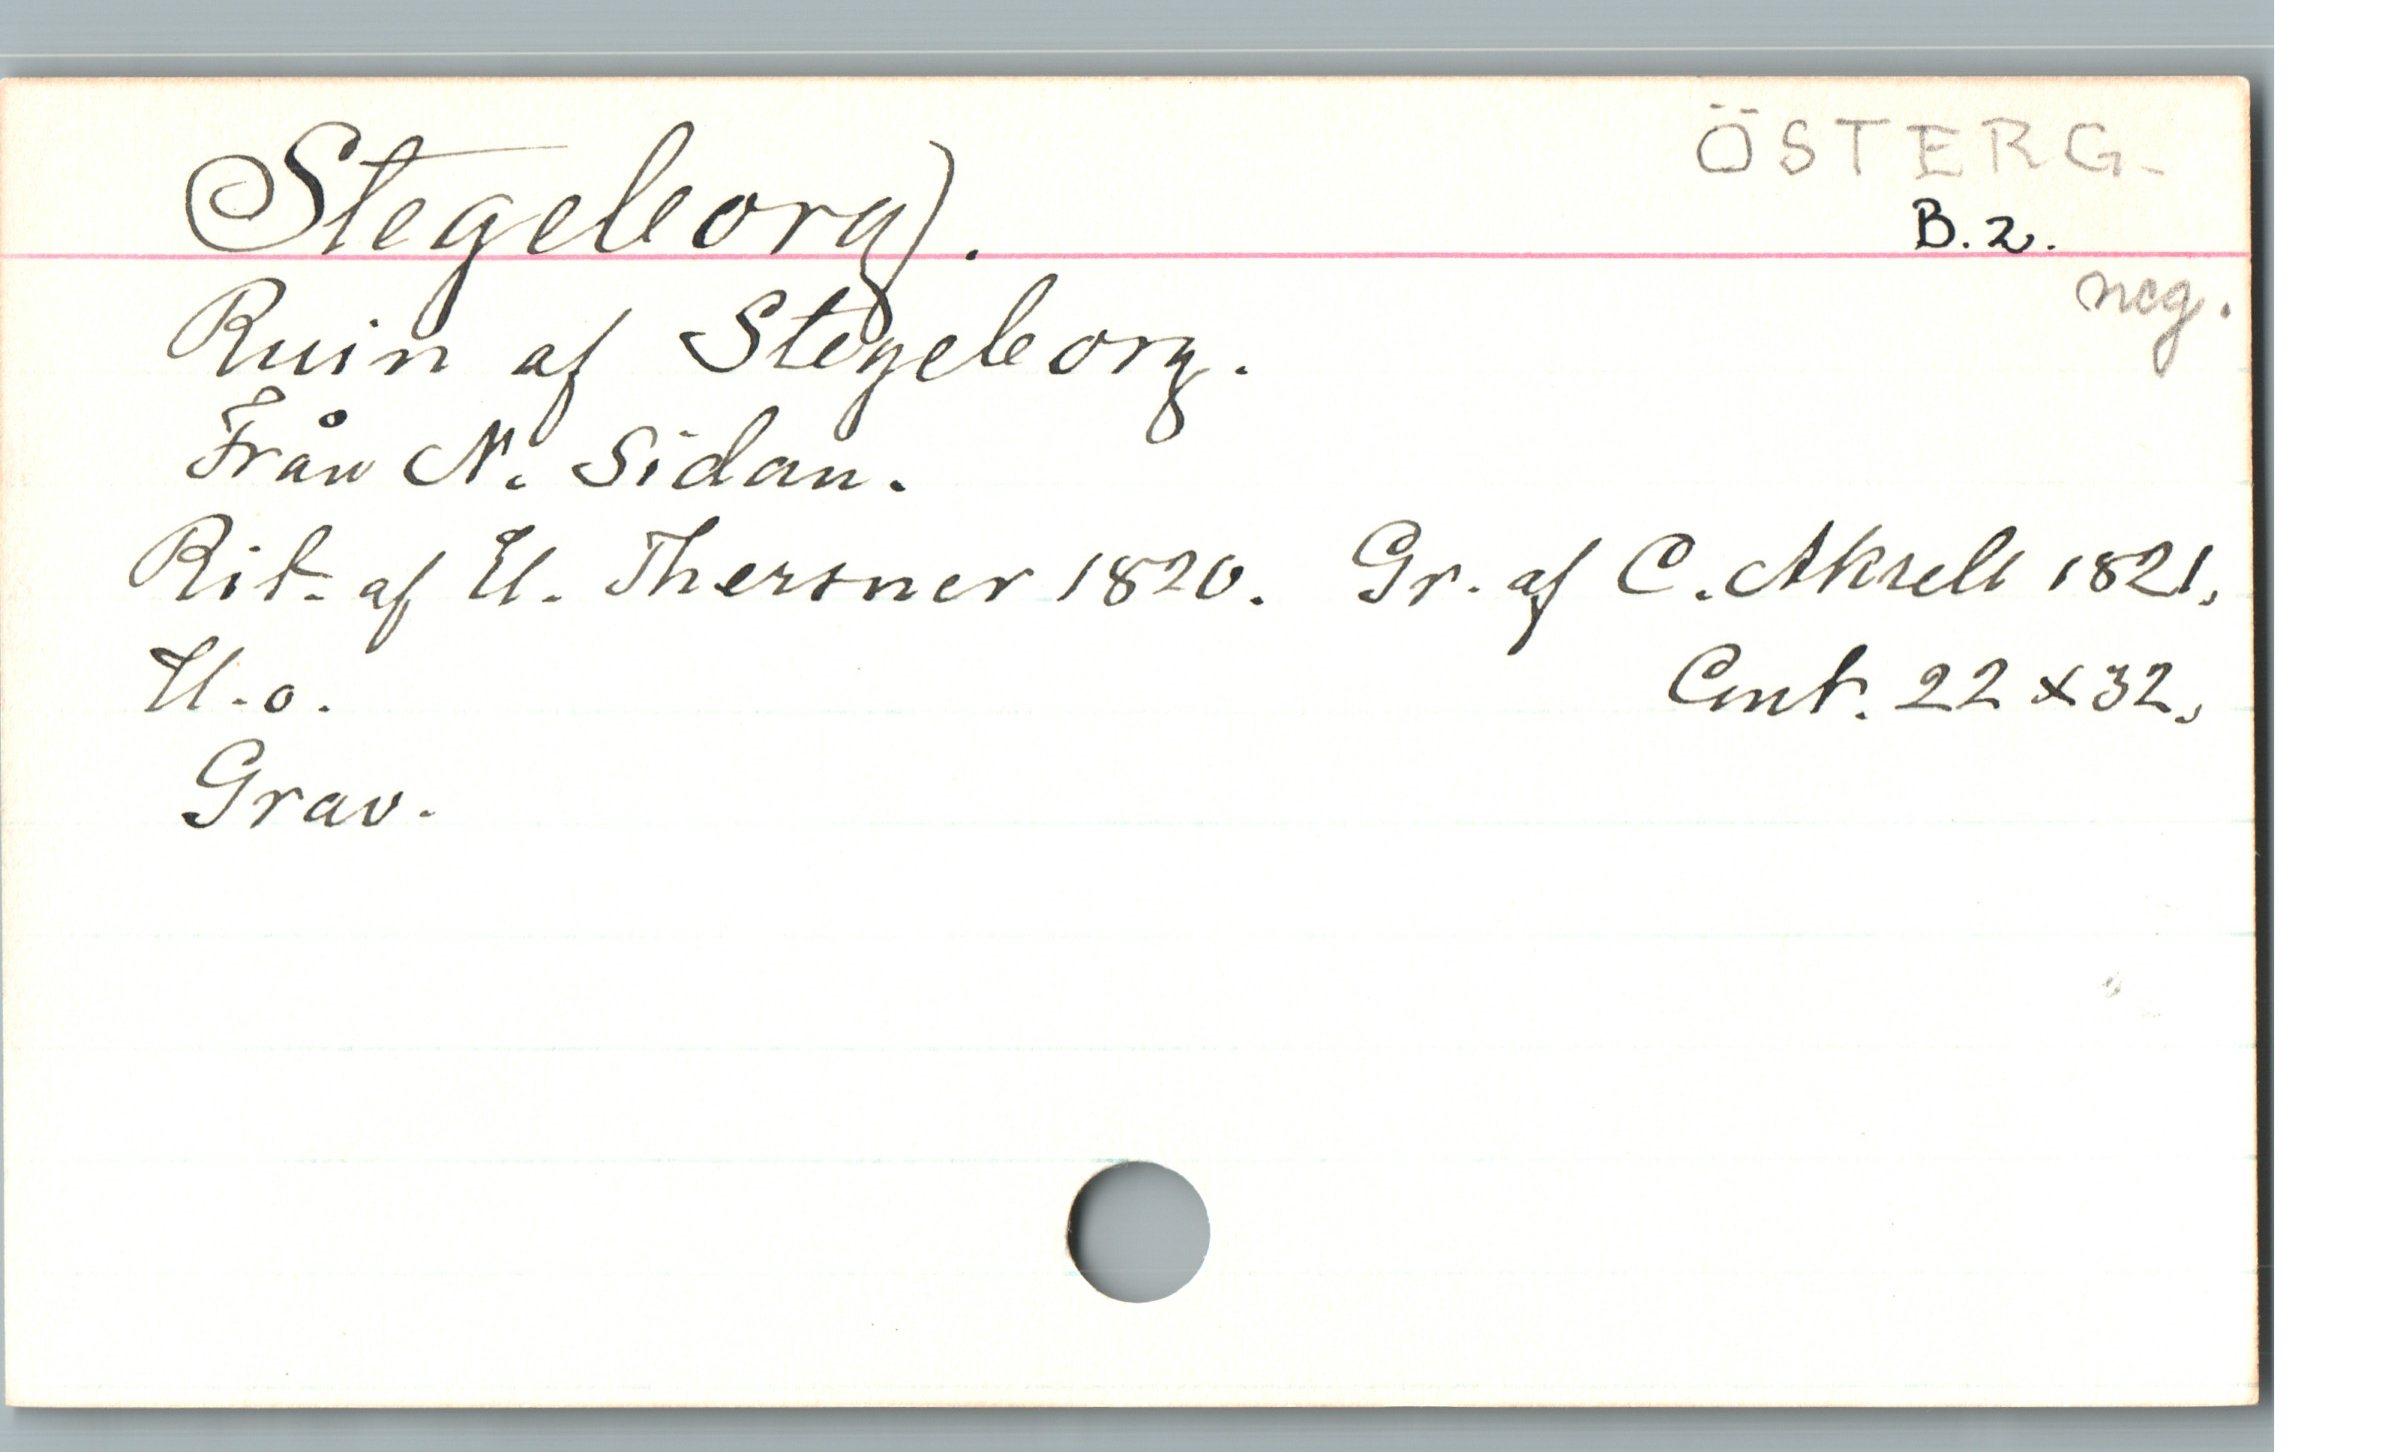 ÖSTERG.
Stegeborg.
B. 2.
neg.
Ruin af Stegeborg.
Från N. Sidan.
Rit. af U. Thersner 1820. Gr. af C. Akrell 1821.
U. o. Cent. 22 x 32.
Grav.